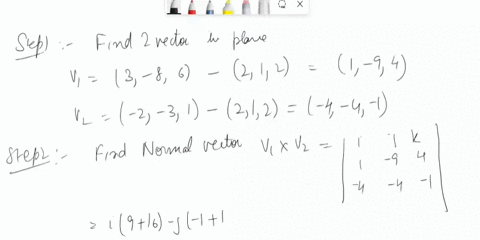 Step1 :- Find 2 vector in plane
V₁ = (3, -8, 6) - (2, 1, 2) = (1, -9, 4)
V₂ = (-2, -3, 1) - (2, 1, 2) = (-4, -4, -1)
Step2 :- Find Normal vector V₁ x V₂ = | i j k
1 -9 4
-4 -4 -1 |
= i (9+16) - j (-1+1